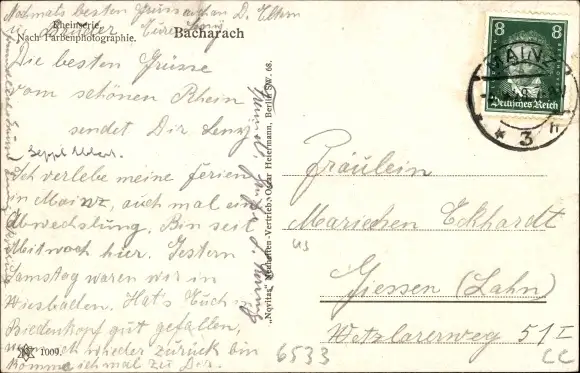 Nochmals besten Gruss auch an D. Eltern
u. Brüder Eure Leny
Rheinserie.
Nach Farbenphotographie.
Bacharach
Die besten Grüsse
vom schönen Rhein
sendet Dir Leny
Ich verlebe meine Ferien
in Mainz, auch mal ein
Abwechslung. Bin seit
Mittwoch hier. Gestern
Samstag waren wir in
Wiesbaden. Hat's Euch in
Biedenkopf gut gefallen,
wenn ich wieder zurück bin
komme ich mal zu Dir.
1009.
"Novitas" Neuheiten-Vertrieb Oscar Heiermann, Berlin SW. 68.
8 8
Deutsches Reich
MAINZ
* 3 h
Fräulein
Mariechen Eckhardt
us
Giessen (Lahn)
Wetzlarerweg 51 I
6533
CC